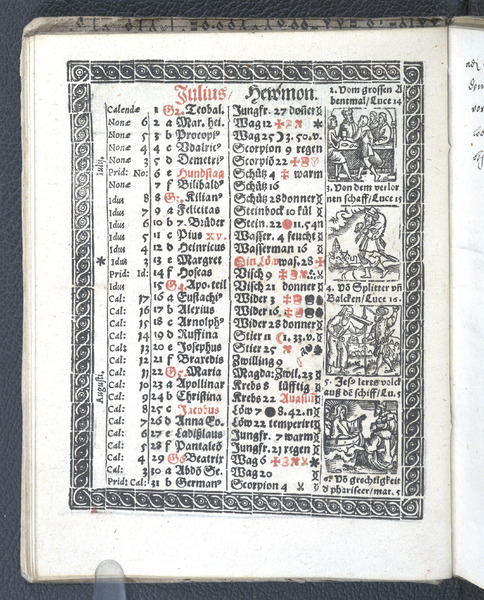 Julius / Hewmon.
Calendæ 1 G2. Teobal. Jungfr. 27 doñer
Nonæ 6 2 a Mar. hei. Wag 12
Nonæ 5 3 b Procopiꝰ Wag 25 3. 50. v.
Nonæ 4 4 c Vdalric⁹ Scorpion 9 regen
Nonæ 3 5 d Demetri⁹ Scorpiō 22
Prid: No: 6 e Hundstag Schütz 4 warm
Nonæ 7 f Bilibald⁹ Schütz 16
Idus 8 8 G3. Kilian⁹ Schütz 28 donner
Idus 7 9 a Felicitas Steinbock 10 kül
Idus 6 10 b 7. Brüder Stein. 22 11. 54 n
Idus 5 11 c Pius XV. Wasser. 4 feucht
Idus 4 12 d Heinricus Wasserman 16
Idus 3 13 e Margret Ein Löw was. 28
Prid: Id: 14 f Hoseas Visch 9
Idus 15 G4. Apo. teil Visch 21 donner
Cal: 17 16 a Eustachi⁹ Wider 3
Cal: 16 17 b Alexius Wider 16.
Cal: 15 18 c Arnolph⁹ Wider 28 donner
Cal: 14 19 d Ruffina Stier 11 1. 33. v.
Cal: 13 20 e Josephus Stier 25
Cal: 12 21 f Braxedis Zwilling 9
Cal: 11 22 G5. Maria Magda: Zwil. 23
Cal: 10 23 a Apollinar Krebs 8 lüfftig
Cal: 9 24 b Christina Krebs 22 Augustij
Cal: 8 25 c Jacobus Löw 7 8. 42. n
Cal: 7 26 d Anna Eo. Löw 22 temperirt
Cal: 6 27 e Ladißlaus Jungfr. 7 warm
Cal: 5 28 f Pantaleō Jungfr. 23 regen
Cal: 4 29 G6 Beatrix Wag 6
Cal: 3 30 a Abdō Se. Wag 20
Prid: Cal: 31 b German⁹ Scorpion 4
Julij.
Augusti.
2. Vom grossen A
bentmal / Luce 14
3. Von dem verlor
nen schaff / Luce 15
4. Vō Splitter vñ
Balcken / Luce 16.
5. Jesꝰ lerts volck
auß dē schiff / Lu. 5
6. Vō grechtigkeit
d phariseer / mat. 5